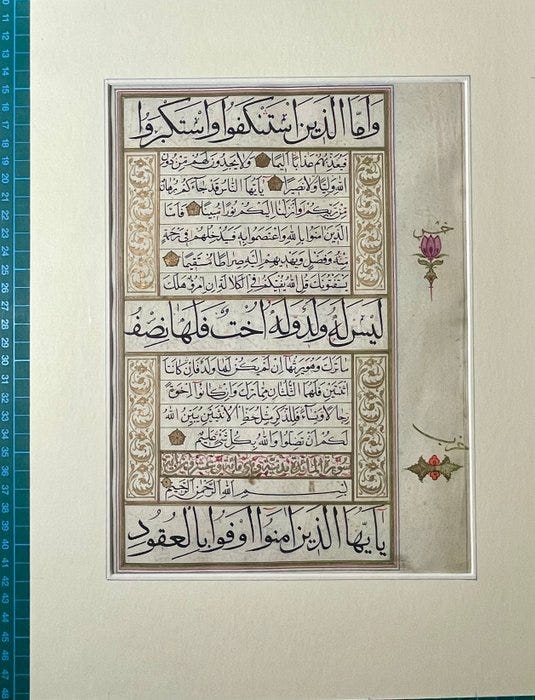 وَاَمَّا الَّذينَ اسْتَنْكَفُوا وَاسْتَكْبَرُوا
فَيُعَذِّبُهُمْ عَذَابًا اَليمًا وَلَا يَجِدُونَ لَهُمْ مِنْ دُونِ
اللهِ وَلِيًّا وَلَا نَصيرًا يَا اَيُّهَا النَّاسُ قَدْ جَاءَكُمْ بُرْهَانٌ
مِنْ رَبِّكُمْ وَاَنْزَلْنَا اِلَيْكُمْ نُورًا مُبينًا فَاَمَّا
الَّذينَ اٰمَنُوا بِاللهِ وَاعْتَصَمُوا بِهِ فَسَيُدْخِلُهُمْ فِي رَحْمَةٍ
مِنْهُ وَفَضْلٍ وَيَهْديهِمْ اِلَيْهِ صِرَاطًا مُسْتَقيمًا
يَسْتَفْتُونَكَ قُلِ اللهُ يُفْتيكُمْ فِي الْكَلَالَةِ اِنِ امْرُؤٌ هَلَكَ
لَيْسَ لَهُ وَلَدٌ وَلَهُ اُخْتٌ فَلَهَا نِصْفُ
مَا تَرَكَ وَهُوَ يَرِثُهَا اِنْ لَمْ يَكُنْ لَهَا وَلَدٌ فَاِنْ كَانَتَا
اثْنَتَيْنِ فَلَهُمَا الثُّلُثَانِ مِمَّا تَرَكَ وَاِنْ كَانُوا اِخْوَةً
رِجَالًا وَنِسَاءً فَلِلذَّكَرِ مِثْلُ حَظِّ الْاُنْثَيَيْنِ يُبَيِّنُ اللهُ
لَكُمْ اَنْ تَضِلُّوا وَاللهُ بِكُلِّ شَيْءٍ عَليمٌ
سورة المائدة مدنية وهي مائة وعشرون
بِسْمِ اللهِ الرَّحْمٰنِ الرَّحيمِ
يَا اَيُّهَا الَّذينَ اٰمَنُوا اَوْفُوا بِالْعُقُودِ
خمس
حزب